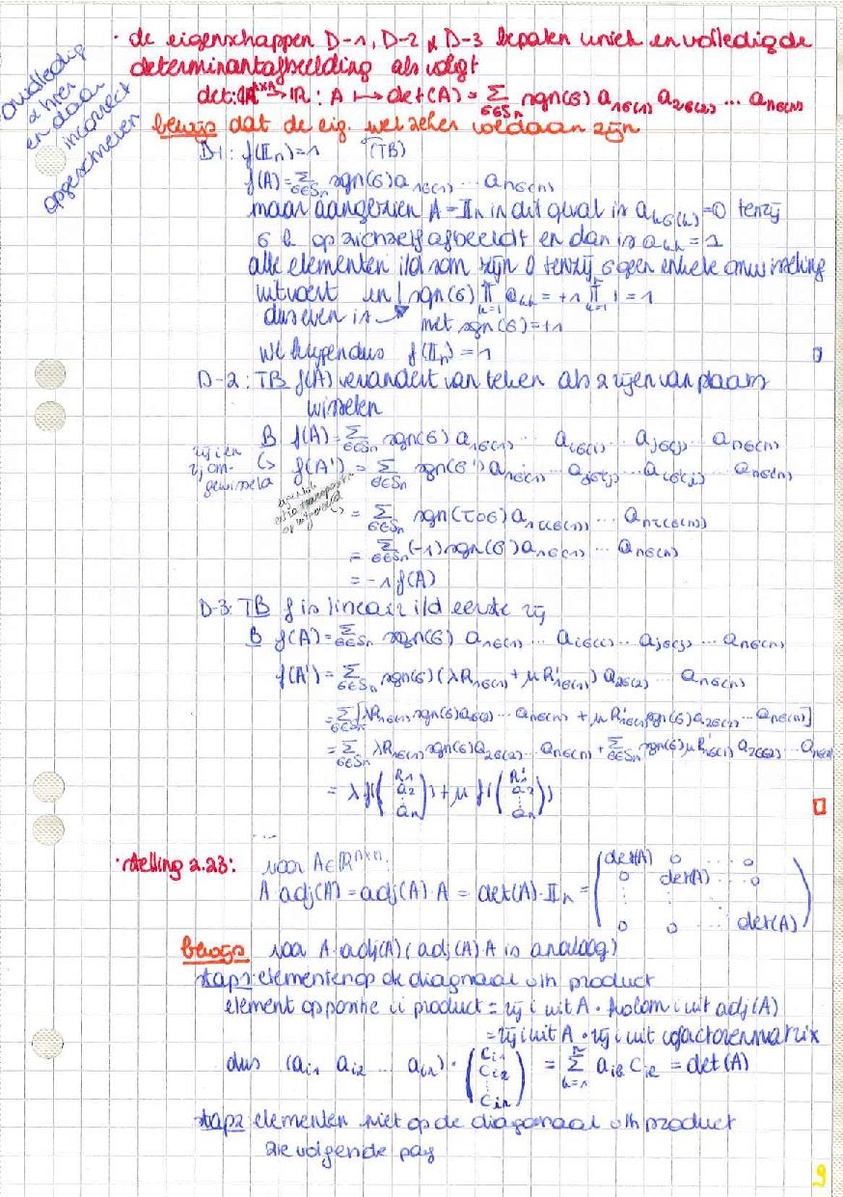 onvolledig
& hier
en daar
incorrect
opgeschreven
· de eigenschappen D-1, D-2 & D-3 bepalen uniek en volledig de
determinantafbeelding als volgt
det: ℝⁿˣⁿ → ℝ : A ↦ det(A) = Σ_{σ∈Sₙ} sgn(σ) a_{1σ(1)} a_{2σ(2)} ... a_{nσ(n)}
bewijs dat de eig. wel zeker voldaan zijn
D-1: f(𝕀ₙ)=1 (TB)
f(A) = Σ_{σ∈Sₙ} sgn(σ) a_{1σ(1)} ... a_{nσ(n)}
maar aangezien A = 𝕀ₙ in dit geval is a_{kσ(k)} = 0 tenzij
σ k op zichzelf afbeeldt en dan is a_{kk} = 1
alle elementen i/d som zijn 0 tenzij σ geen enkele omwisseling
uitvoert en sgn(σ) ∏_{k=1}^{n} a_{kk} = +1 ∏_{k=1}^{n} 1 = 1
dus even is met sgn(σ)=+1
we krijgen dus f(𝕀ₙ) = 1 □
D-2: TB f(A) verandert van teken als 2 rijen van plaats
wisselen
B f(A) = Σ_{σ∈Sₙ} sgn(σ) a_{1σ(1)} ... a_{iσ(i)} ... a_{jσ(j)} ... a_{nσ(n)}
rij i en
rij j om-
gewisseld
↳ f(A') = Σ_{σ∈Sₙ} sgn(σ') a_{1σ'(1)} ... a_{jσ'(j)} ... a_{iσ'(j)} ... a_{nσ(n)}
= Σ_{σ∈Sₙ} sgn(τ∘σ) a_{1τ(σ(1))} ... a_{nτ(σ(n))}
= Σ_{σ∈Sₙ} (-1) sgn(σ) a_{1σ(1)} ... a_{nσ(n)}
= -1 f(A)
D-3: TB f is lineair i/d eerste rij
B f(A) = Σ_{σ∈Sₙ} sgn(σ) a_{1σ(1)} ... a_{iσ(i)} ... a_{jσ(j)} ... a_{nσ(n)}
f(A') = Σ_{σ∈Sₙ} sgn(σ) (λR_{1σ(1)} + μR'_{1σ(1)}) a_{2σ(2)} ... a_{nσ(n)}
= Σ_{σ∈Sₙ} [λR_{1σ(1)} sgn(σ) a_{2σ(2)} ... a_{nσ(n)} + μR'_{1σ(1)} sgn(σ) a_{2σ(2)} ... a_{nσ(n)}]
= Σ_{σ∈Sₙ} λR_{1σ(1)} sgn(σ) a_{2σ(2)} ... a_{nσ(n)} + Σ_{σ∈Sₙ} sgn(σ) μR'_{1σ(1)} a_{2σ(2)} ... a_{nσ(n)}
= λ f((R₁ a₂ ⋮ aₙ)) + μ f((R'₁ a₂ ⋮ aₙ)) □
...
· stelling 2.23: voor A∈ℝⁿˣⁿ:
A·adj(A) = adj(A)·A = det(A)·𝕀ₙ = (det(A) 0 ... 0
0 det(A) ... 0
0 0 ... det(A))
bewijs voor A·adj(A) (adj(A)·A is analoog)
stap1: elementen op de diagonaal v/h product
element op positie ii product = rij i uit A · kolom i uit adj(A)
= rij i uit A · rij i uit cofactorenmatrix
dus (a_{i1} a_{i2} ... a_{in}) · (C_{i1} C_{i2} ⋮ C_{in}) = Σ_{k=1}^{n} a_{ik} C_{ik} = det(A)
stap2 elementen niet op de diagonaal v/h product
zie volgende pag
9